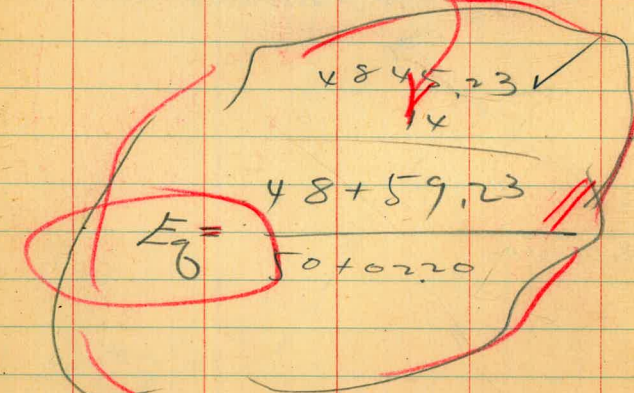 4845.23 ✓
14
48+59.23
Eq =
50+02.20